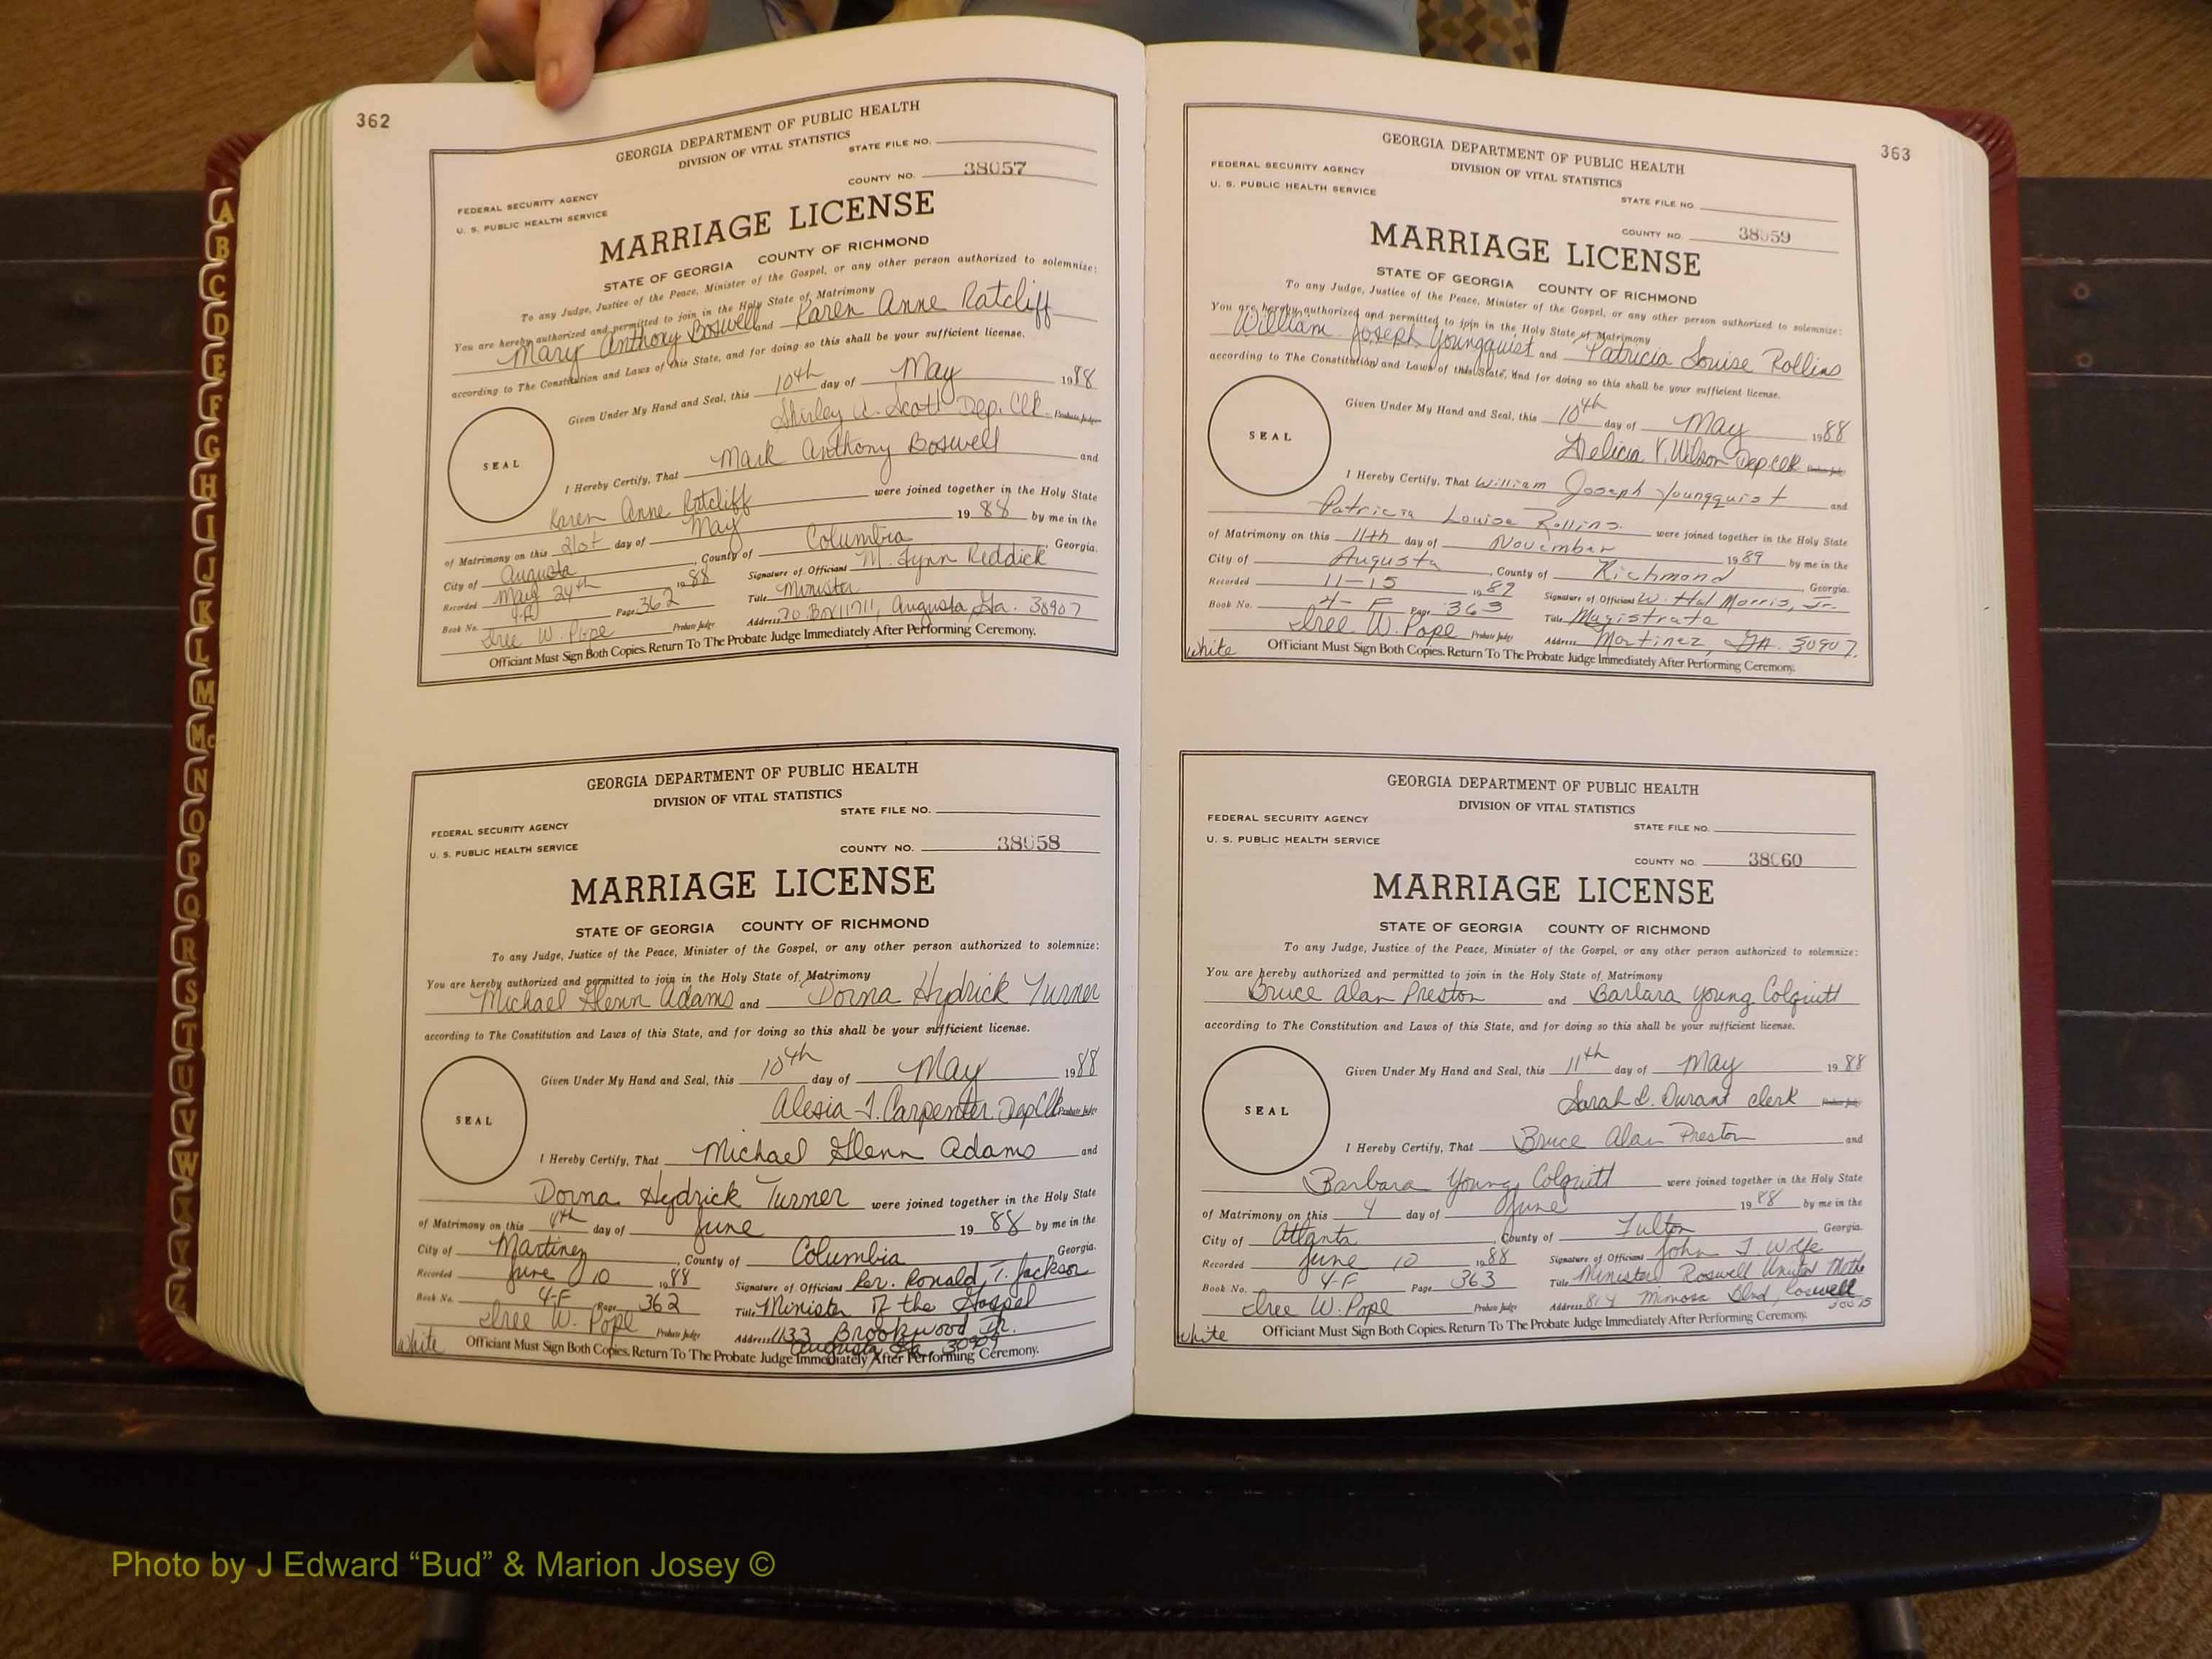 362
GEORGIA DEPARTMENT OF PUBLIC HEALTH
DIVISION OF VITAL STATISTICS
STATE FILE NO.
COUNTY NO. 38057
FEDERAL SECURITY AGENCY
U. S. PUBLIC HEALTH SERVICE
MARRIAGE LICENSE
STATE OF GEORGIA COUNTY OF RICHMOND
To any Judge, Justice of the Peace, Minister of the Gospel, or any other person authorized to solemnize:
You are hereby authorized and permitted to join in the Holy State of Matrimony
Mary Anthony Boswell and Karen Anne Ratcliff
according to The Constitution and Laws of this State, and for doing so this shall be your sufficient license.
Given Under My Hand and Seal, this 10th day of May 1988
Shirley A. Scott Dep. Clk Probate Judge
SEAL
I Hereby Certify, That Mark Anthony Boswell and
Karen Anne Ratcliff were joined together in the Holy State
of Matrimony on this 21st day of May 1988 by me in the
City of Augusta, County of Columbia, Georgia.
Recorded May 24th 1988 Signature of Officiant M. Lynn Reddick
Book No. Page 362 Title Minister
Iree W. Pope Probate Judge Address PO Box 11711, Augusta, Ga. 30907
Officiant Must Sign Both Copies. Return To The Probate Judge Immediately After Performing Ceremony.
GEORGIA DEPARTMENT OF PUBLIC HEALTH
DIVISION OF VITAL STATISTICS
STATE FILE NO.
FEDERAL SECURITY AGENCY
U. S. PUBLIC HEALTH SERVICE
COUNTY NO. 38058
MARRIAGE LICENSE
STATE OF GEORGIA COUNTY OF RICHMOND
To any Judge, Justice of the Peace, Minister of the Gospel, or any other person authorized to solemnize:
You are hereby authorized and permitted to join in the Holy State of Matrimony
Michael Glenn Adams and Donna Hydrick Turner
according to The Constitution and Laws of this State, and for doing so this shall be your sufficient license.
Given Under My Hand and Seal, this 10th day of May 1988
Alesia J. Carpenter Dep Clk Probate Judge
SEAL
I Hereby Certify, That Michael Glenn Adams and
Donna Hydrick Turner were joined together in the Holy State
of Matrimony on this 4th day of June 1988 by me in the
City of Martinez, County of Columbia Georgia.
Recorded June 10 1988 Signature of Officiant Rev. Ronald T. Jackson
Book No. 4-F Page 362 Title Minister of the Gospel
Iree W. Pope Probate Judge Address 1133 Brookwood Dr.
Augusta, Ga. 30909
White Officiant Must Sign Both Copies. Return To The Probate Judge Immediately After Performing Ceremony.
363
GEORGIA DEPARTMENT OF PUBLIC HEALTH
DIVISION OF VITAL STATISTICS
FEDERAL SECURITY AGENCY
U. S. PUBLIC HEALTH SERVICE
STATE FILE NO.
COUNTY NO. 38059
MARRIAGE LICENSE
STATE OF GEORGIA COUNTY OF RICHMOND
To any Judge, Justice of the Peace, Minister of the Gospel, or any other person authorized to solemnize:
You are hereby authorized and permitted to join in the Holy State of Matrimony
William Joseph Youngquist and Patricia Louise Rollins
according to The Constitution and Laws of this State, and for doing so this shall be your sufficient license.
Given Under My Hand and Seal, this 10th day of May 1988
Delicia V. Wilson Dep. Clk Probate Judge
SEAL
I Hereby Certify, That William Joseph Youngquist and
Patricia Louise Rollins were joined together in the Holy State
of Matrimony on this 11th day of November 1989 by me in the
City of Augusta, County of Richmond Georgia.
Recorded 11-15 1989 Signature of Officiant W. Hal Morris, Jr.
Book No. 4-F Page 363 Title Magistrate
Iree W. Pope Probate Judge Address Martinez, GA. 30907.
White Officiant Must Sign Both Copies. Return To The Probate Judge Immediately After Performing Ceremony.
GEORGIA DEPARTMENT OF PUBLIC HEALTH
DIVISION OF VITAL STATISTICS
FEDERAL SECURITY AGENCY
U. S. PUBLIC HEALTH SERVICE
STATE FILE NO.
COUNTY NO. 38060
MARRIAGE LICENSE
STATE OF GEORGIA COUNTY OF RICHMOND
To any Judge, Justice of the Peace, Minister of the Gospel, or any other person authorized to solemnize:
You are hereby authorized and permitted to join in the Holy State of Matrimony
Bruce Alan Preston and Barbara Young Colquitt
according to The Constitution and Laws of this State, and for doing so this shall be your sufficient license.
Given Under My Hand and Seal, this 11th day of May 1988
Sarah L. Durant clerk Probate Judge
SEAL
I Hereby Certify, That Bruce Alan Preston and
Barbara Young Colquitt were joined together in the Holy State
of Matrimony on this 4 day of June 1988 by me in the
City of Atlanta, County of Fulton Georgia.
Recorded June 10 1988 Signature of Officiant John J. Wolfe
Book No. 4-F Page 363 Title Minister Roswell United Metho
Iree W. Pope Probate Judge Address 814 Mimosa Blvd, Roswell
30075
White Officiant Must Sign Both Copies. Return To The Probate Judge Immediately After Performing Ceremony.
A
B
C
D
E
F
G
H
I
J
K
L
M
Mc
N
O
P
Q
R
S
T
U
V
W
X
Y
Z
Photo by J Edward “Bud” & Marion Josey ©